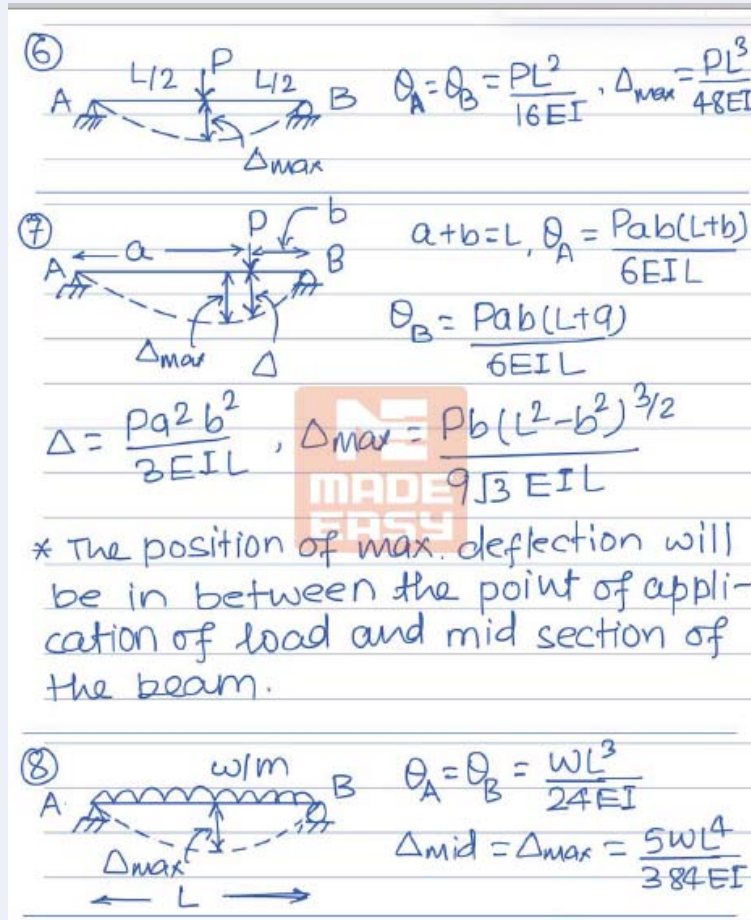 ⑥
L/2 P L/2
A B
Δmax
θ_A = θ_B = PL²/16EI, Δmax = PL³/48EI
⑦
P b
a
A B
Δmax Δ
a+b=L, θ_A = Pab(L+b)/6EIL
θ_B = Pab(L+a)/6EIL
Δ = Pa²b²/3EIL, Δmax = Pb(L²-b²)^3/2/9√3 EIL
MADE
EASY
* The position of max. deflection will
be in between the point of appli-
cation of load and mid section of
the beam.
⑧
w/m
A B
Δmax
L
θ_A = θ_B = WL³/24EI
Δmid = Δmax = 5WL⁴/384EI